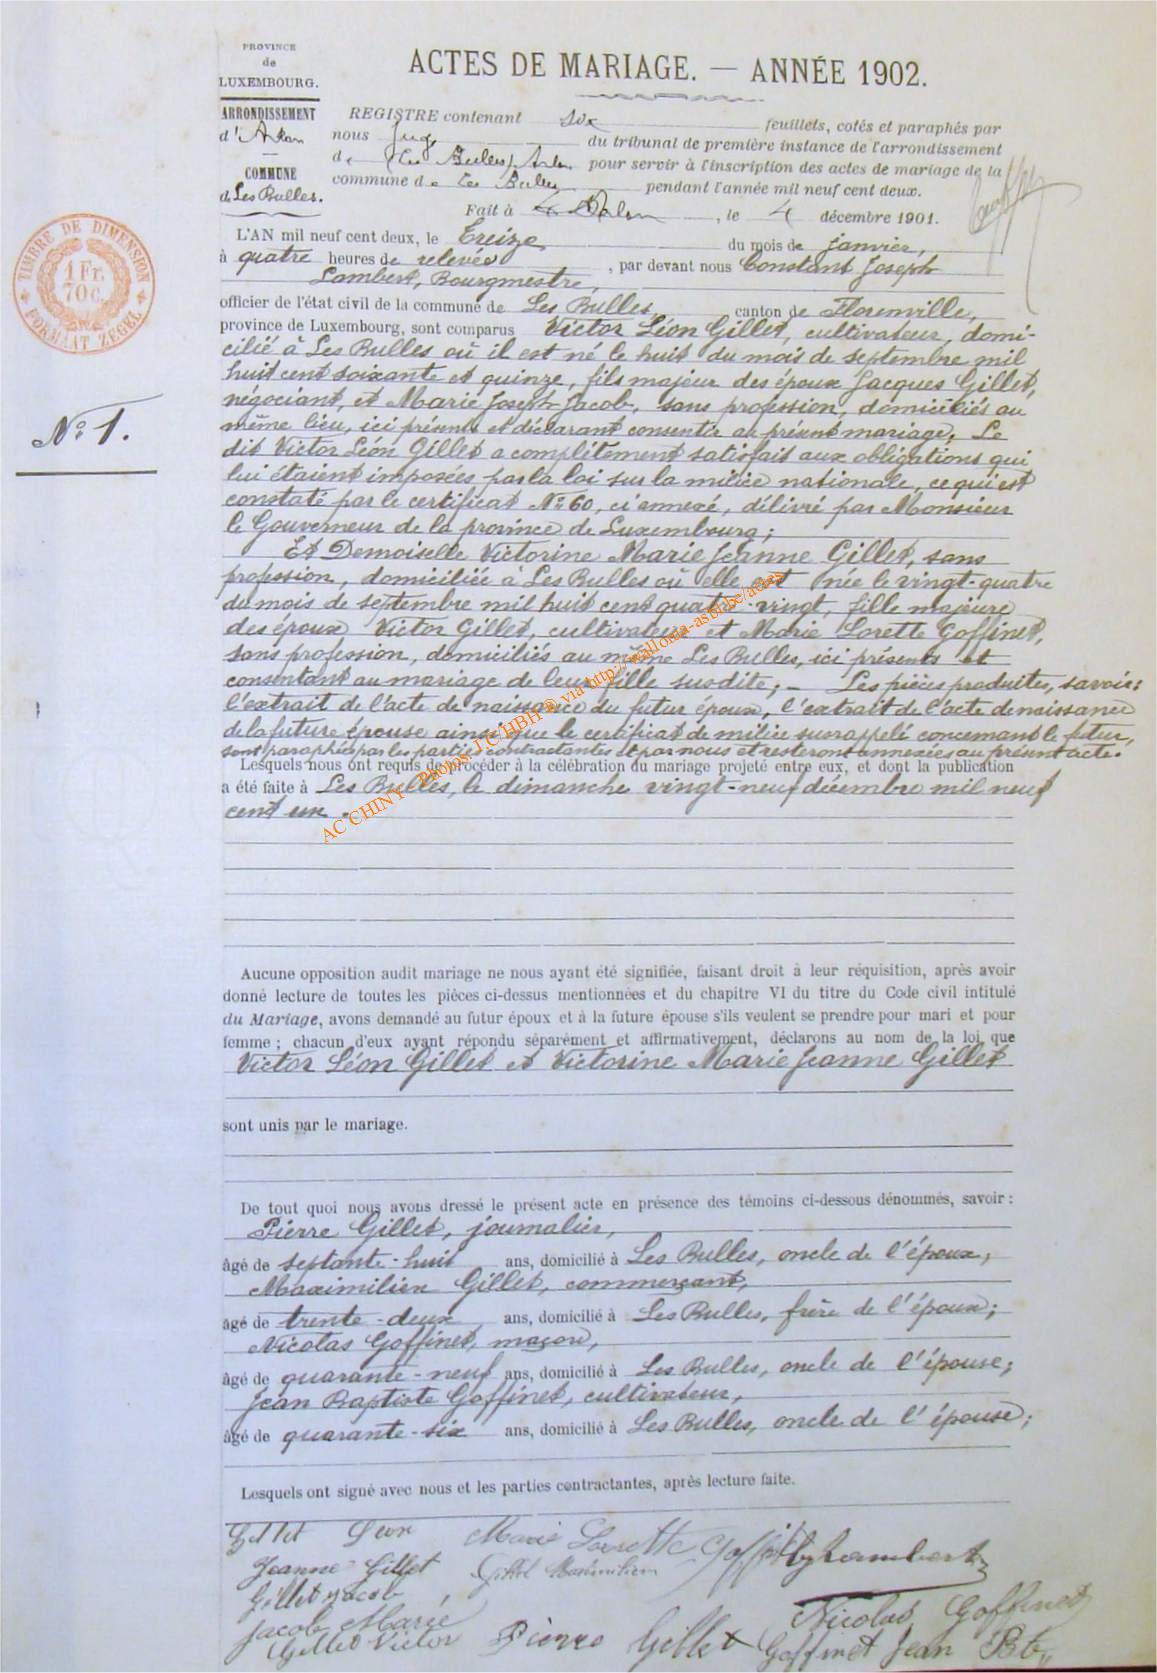 PROVINCE
de
LUXEMBOURG.
ARRONDISSEMENT
d'Arlon
COMMUNE
de Les Bulles.
ACTES DE MARIAGE. — ANNÉE 1902.
REGISTRE contenant six feuillets, cotés et paraphés par
nous Juge du tribunal de première instance de l'arrondissement
d Arlon pour servir à l'inscription des actes de mariage de la
commune de Les Bulles pendant l'année mil neuf cent deux.
Fait à Arlon, le 4 décembre 1901.
TIMBRE DE DIMENSION
1 Fr.
70 c.
FORMAAT ZEGEL
N° 1.
L'AN mil neuf cent deux, le treize du mois de janvier,
à quatre heures de relevée, par devant nous Constant Joseph
Lambert, Bourgmestre,
officier de l'état civil de la commune de Les Bulles, canton de Florenville,
province de Luxembourg, sont comparus Victor Léon Gillet, cultivateur, domi-
cilié à Les Bulles où il est né le huit du mois de septembre mil
huit cent soixante et quinze, fils majeur des époux Jacques Gillet,
négociant, et Marie Joseph Jacob, sans profession, domiciliés au
même lieu, ici présents et déclarant consentir au présent mariage. Le
dit Victor Léon Gillet a complètement satisfait aux obligations qui
lui étaient imposées par la loi sur la milice nationale, ce qui est
constaté par le certificat N° 60, ci annexé, délivré par Monsieur
le Gouverneur de la province de Luxembourg;
Et Demoiselle Victorine Marie Jeanne Gillet, sans
profession, domiciliée à Les Bulles où elle est née le vingt-quatre
du mois de septembre mil huit cent quatre-vingt, fille majeure
des époux Victor Gillet, cultivateur et Marie Lorette Goffinet,
sans profession, domiciliés au même Les Bulles, ici présents et
consentant au mariage de leur fille susdite; — Les pièces produites, savoir:
l'extrait de l'acte de naissance du futur époux, l'extrait de l'acte de naissance
de la future épouse ainsi que le certificat de milice susrappelé concernant le futur,
sont paraphées par les parties contractantes et par nous et resteront annexées au présent acte.
Lesquels nous ont requis de procéder à la célébration du mariage projeté entre eux, et dont la publication
a été faite à Les Bulles, le dimanche vingt-neuf décembre mil neuf
cent un.
AC CHINY - Photos: J.C/HBH @ via http://wallonia-asbl.be/actes
Aucune opposition audit mariage ne nous ayant été signifiée, faisant droit à leur réquisition, après avoir
donné lecture de toutes les pièces ci-dessus mentionnées et du chapitre VI du titre du Code civil intitulé
du Mariage, avons demandé au futur époux et à la future épouse s'ils veulent se prendre pour mari et pour
femme ; chacun d'eux ayant répondu séparément et affirmativement, déclarons au nom de la loi que
Victor Léon Gillet et Victorine Marie Jeanne Gillet
sont unis par le mariage.
De tout quoi nous avons dressé le présent acte en présence des témoins ci-dessous dénommés, savoir :
Pierre Gillet, journalier,
âgé de septante-huit ans, domicilié à Les Bulles, oncle de l'époux;
Maximilien Gillet, commerçant,
âgé de trente-deux ans, domicilié à Les Bulles, frère de l'époux;
Nicolas Goffinet, maçon,
âgé de quarante-neuf ans, domicilié à Les Bulles, oncle de l'épouse;
Jean Baptiste Goffinet, cultivateur,
âgé de quarante-six ans, domicilié à Les Bulles, oncle de l'épouse;
Lesquels ont signé avec nous et les parties contractantes, après lecture faite.
Gillet Léon Marie Lorette Goffinet Lambert
Jeanne Gillet Gillet Maximilien
Gillet Jacob
Jacob Marie Nicolas Goffinet
Gillet Victor Pierre Gillet Goffinet Jean Bte